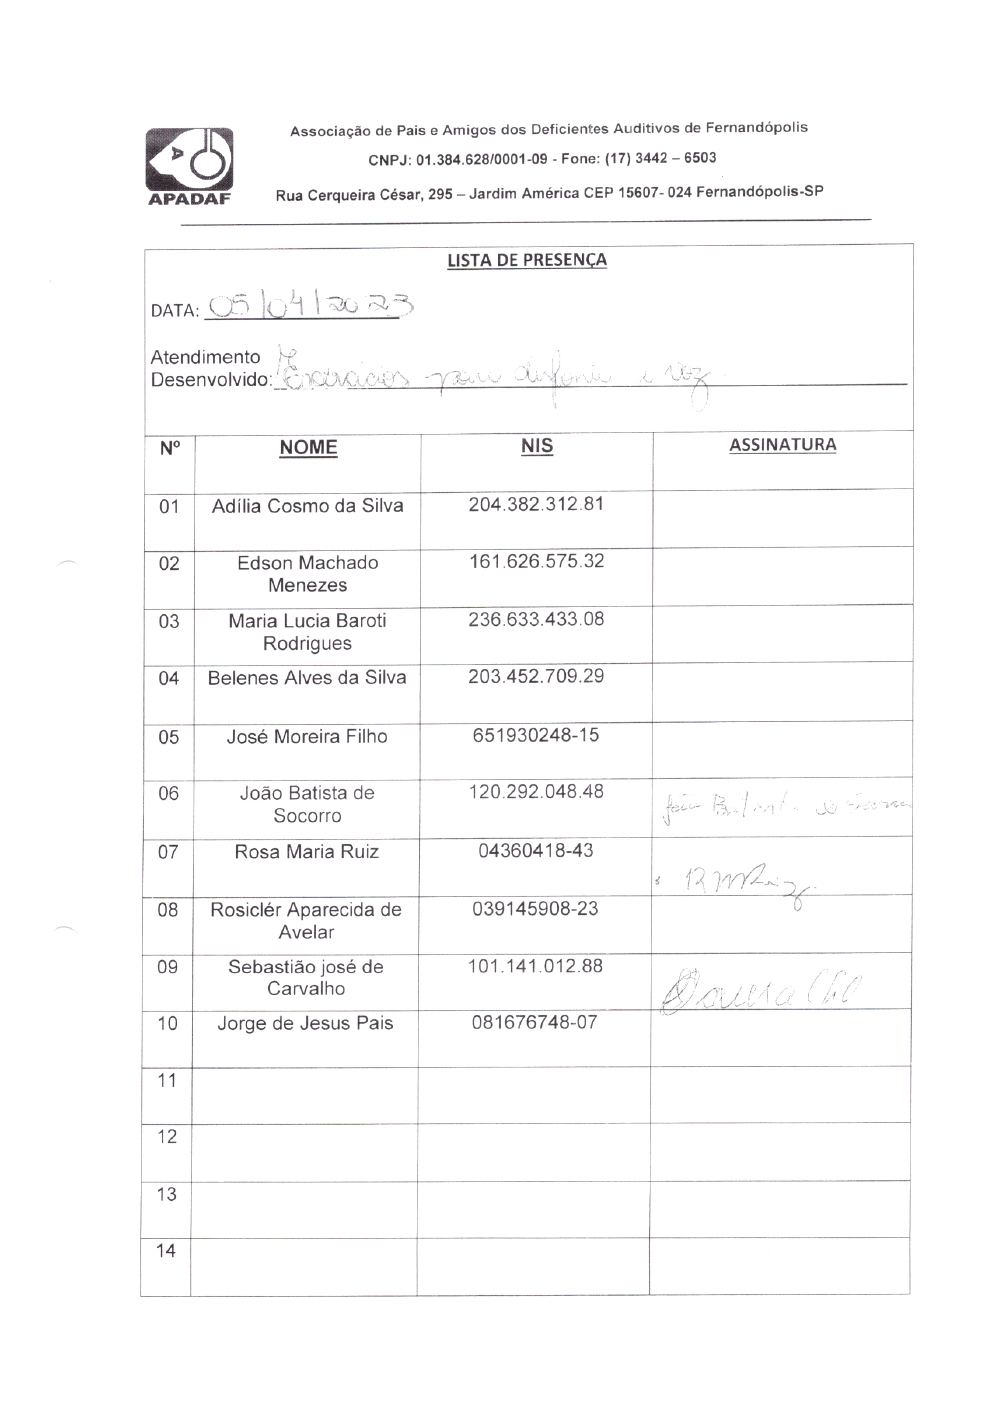 Associação de Pais e Amigos dos Deficientes Auditivos de Fernandópolis
CNPJ: 01.384.628/0001-09 - Fone: (17) 3442 – 6503
APADAF
Rua Cerqueira César, 295 – Jardim América CEP 15607- 024 Fernandópolis-SP
LISTA DE PRESENÇA
DATA: 05/04/2023
Atendimento
Desenvolvido: para disfonia e voz
Nº NOME NIS ASSINATURA
01 Adília Cosmo da Silva 204.382.312.81
02 Edson Machado 161.626.575.32
Menezes
03 Maria Lucia Baroti 236.633.433.08
Rodrigues
04 Belenes Alves da Silva 203.452.709.29
05 José Moreira Filho 651930248-15
06 João Batista de 120.292.048.48 João Batista de
Socorro
07 Rosa Maria Ruiz 04360418-43
RMRuiz
08 Rosiclér Aparecida de 039145908-23
Avelar
09 Sebastião josé de 101.141.012.88
Carvalho
10 Jorge de Jesus Pais 081676748-07
11
12
13
14